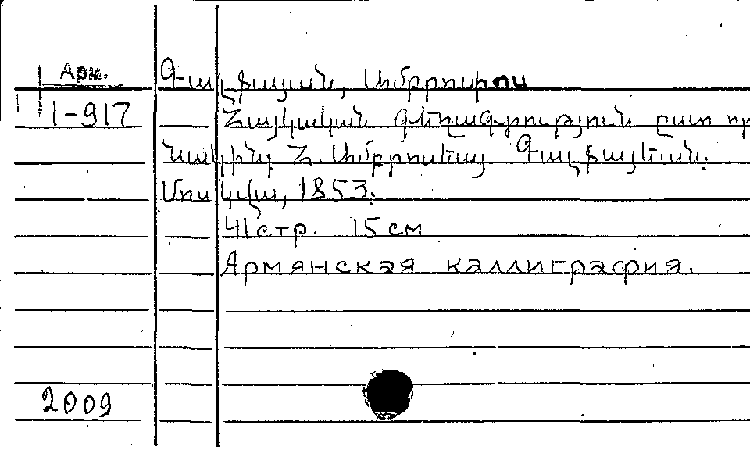 Арм.
1-917
Գալֆայան, Ամբրոսիոս
Հայկական գեղագրություն ըստ որ
Հ. Ամբրոսեայ Գալֆայեան.
Մոսկվա, 1853.
41стр. 15см
Армянская каллиграфия.
2009